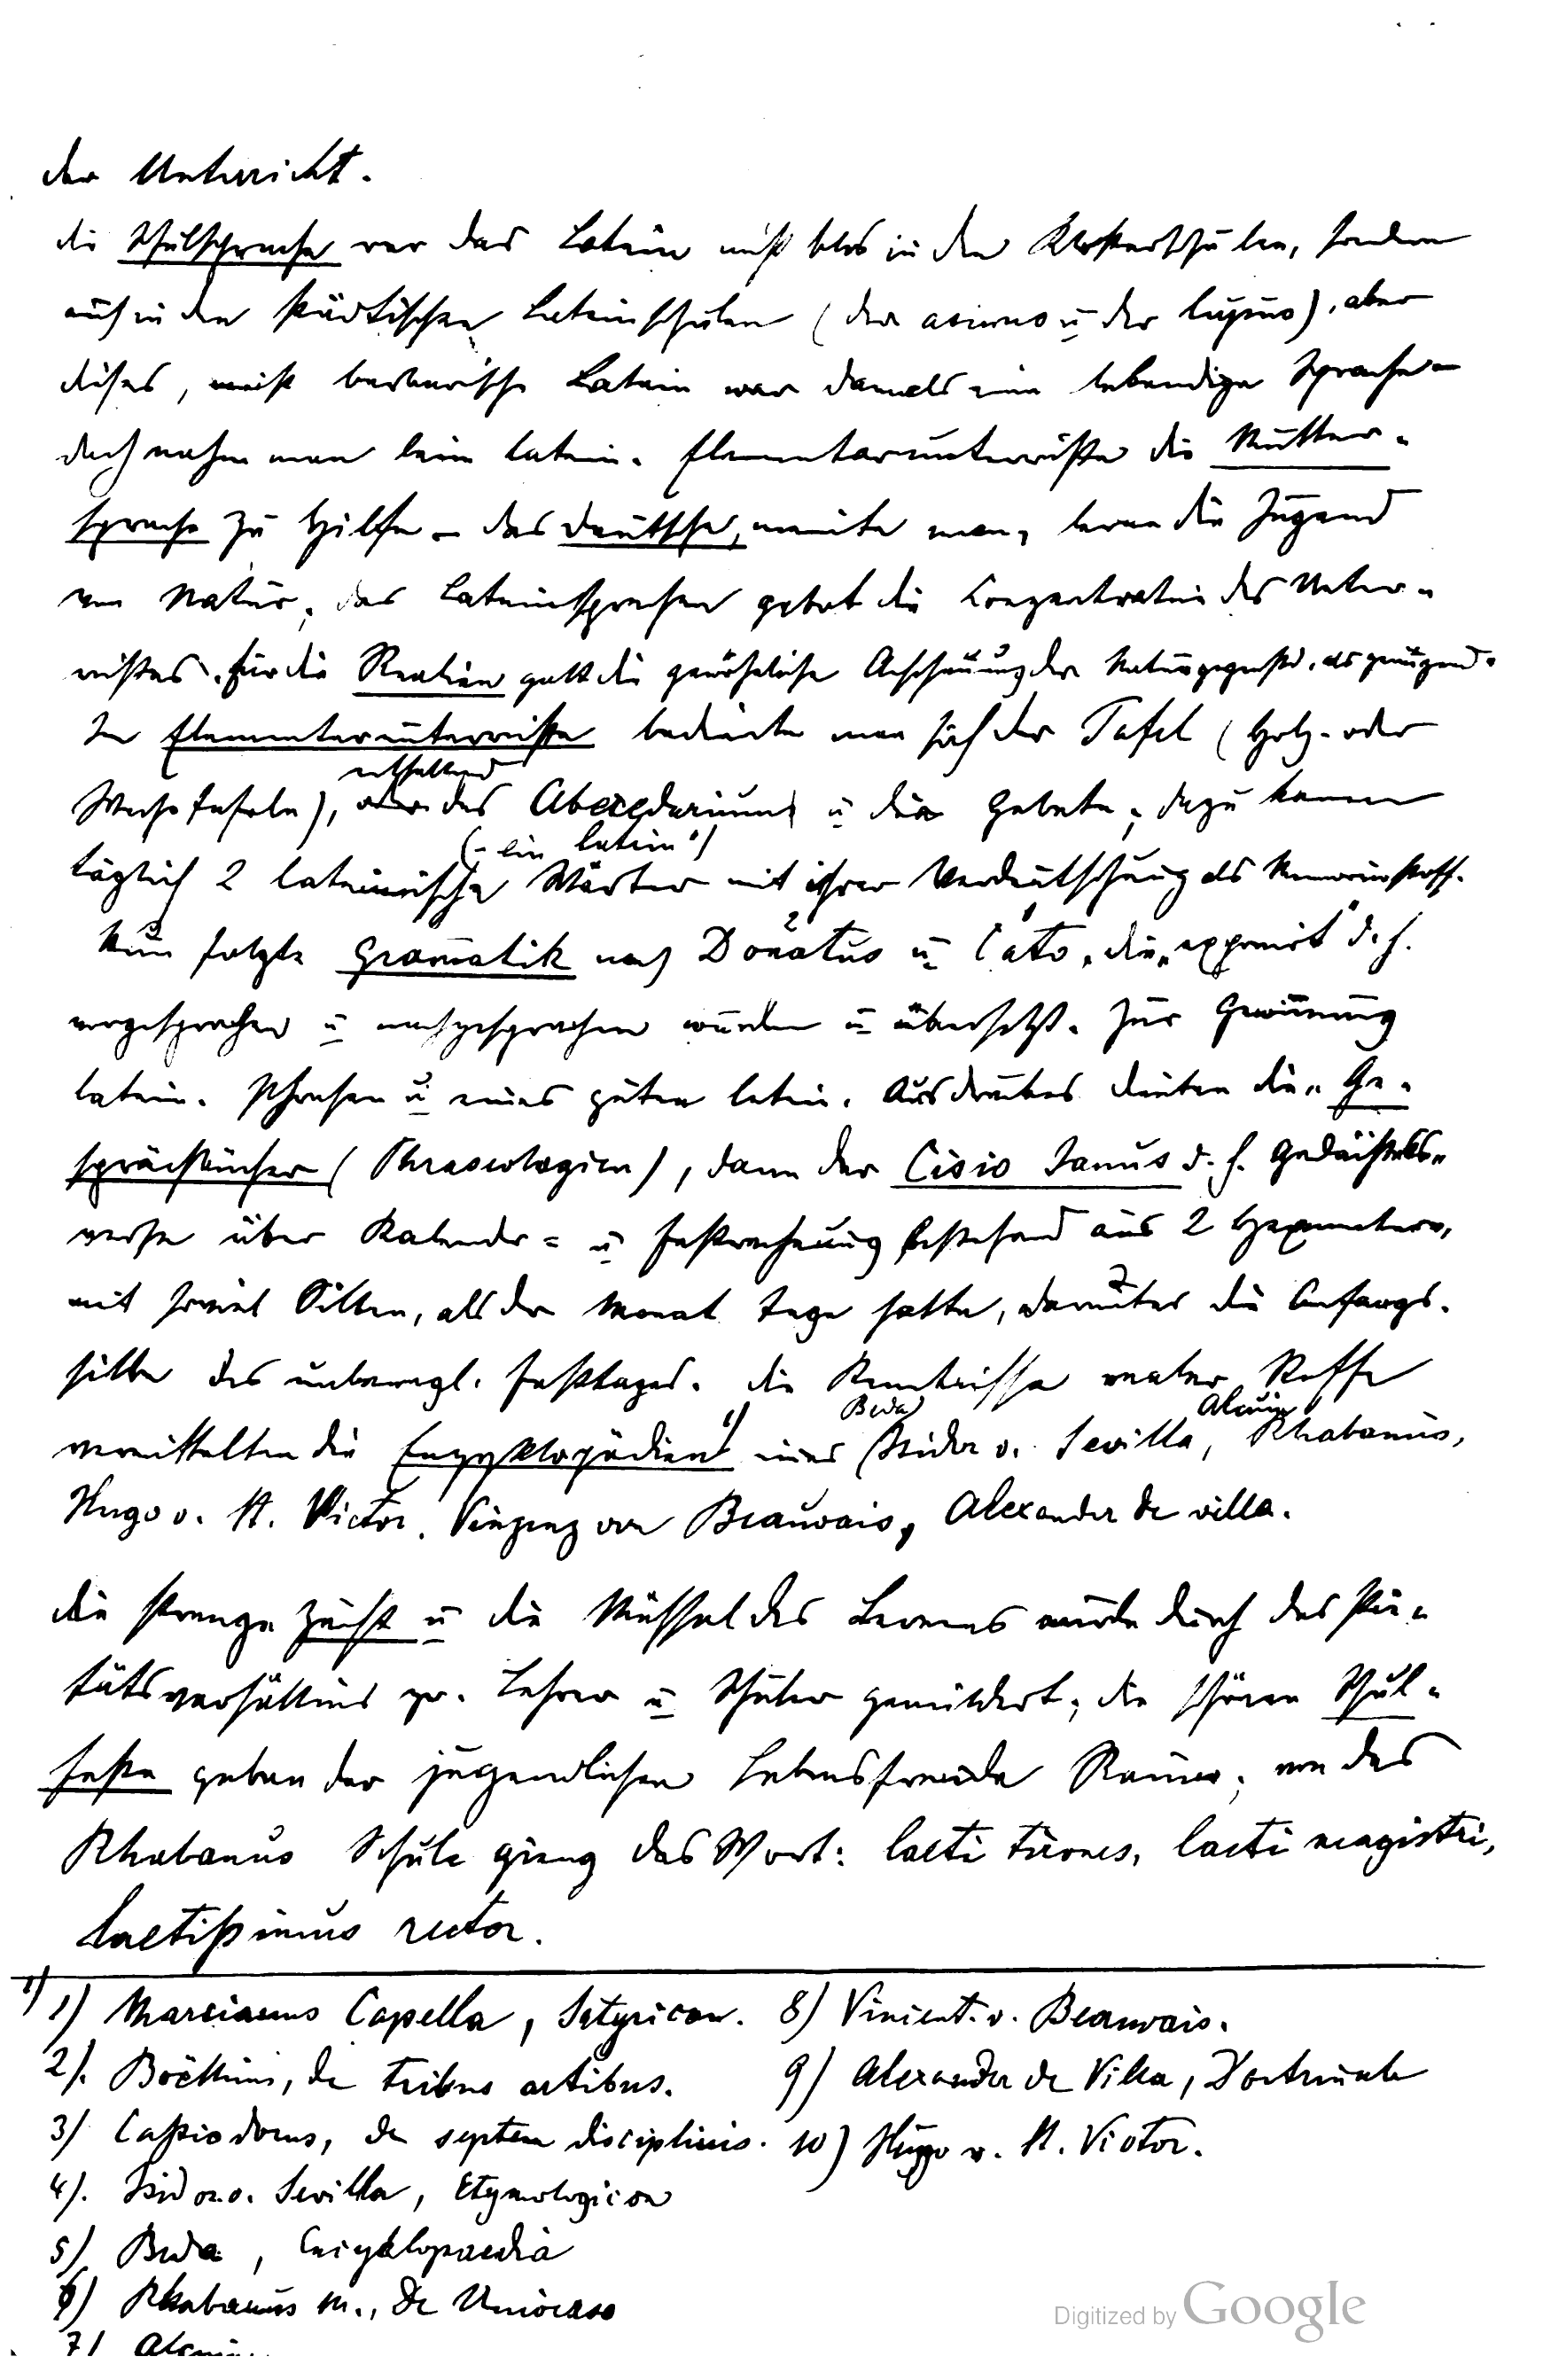 der Unterricht.
die Schulsprache war das Latein nicht blos in den Klosterschulen, sondern
auch in den städtischen Lateinschulen (der asinus u der lupus), aber
dises, meist barbarische Latein war damals eine lebendige Sprache –
doch nahm man beim latein. Elementarunterrichte die Mutter-
sprache zu Hilfe – das deutsche, meinte man, lerne die Jugend
von Natur, das Lateinsprechen gebot die Conzentration des Unter-
richtes. für die Realien galt die gewöhnliche Anschauung der Naturgegenstd. als genügend.
Im Elementarunterrichte bediente man sich der Tafel (Holz- oder
enthaltend
Wachstafeln), das Abecedarium u die Gebete; dazu kamen
(„ein latein“)
täglich 2 lateinische Wörter mit ihrer Verdeutschung als Memorierstoff.
Nun folgte Gramatik nach Donatus u Cato, die „exponirt“ d. h.
vorgesprochen u nachgesprochen wurden u übersetzt. Zur Gewinnung
latein. Phrasen u eines guten latein. Ausdruckes dienten die Ge-
sprächbücher (Phraseologien), dann der Cisio Janus d. h. Gedächtnis-
verse über Kalender- u Festrechnung bestehend aus 2 Hexametern,
mit soviel Silben, als der Monat Tage hatte, darunter die Anfangs-
silbe des unbewegl. Festtages. die Kenntnisse realer Stoffe
Beda Alcuin
vermittelten die Enzyklopädien 1) eines Isidor v. Sevilla, Rhabanus,
Hugo v. St. Victor, Vinzenz von Beauvais, Alexander de villa.
die strenge Zucht u die Mühsal des Lernens wurde durch das Pie-
tätsverhältnis zw. Lehrer u Schüler gemildert; die schönen Schul-
feste gaben der jugendlichen Lebensfreude Raum; von des
Rhabanus Schule gieng das Wort: laeti tirones, laeti magistri,
laetissimus rector.
1) 1) Marcianus Capella, Satyricon. 8) Vincent. v. Beauvais.
2). Boëthius, de tribus artibus. 9) Alexander de Villa, Doctrinale
3) Cassiodorus, de septem disciplinis. 10) Hugo v. St. Victor.
4). Isidor v. Sevilla, Etymologicon
5) Beda, Encyklopaedia
6) Rhabanus M., De Universo
7) Alcuin
Digitized by Google